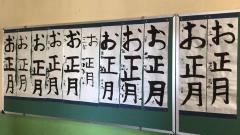 お正月
お正月
お正月
お正月
お正月
お正月
お正月
お正月
お正月
お正月
お正月